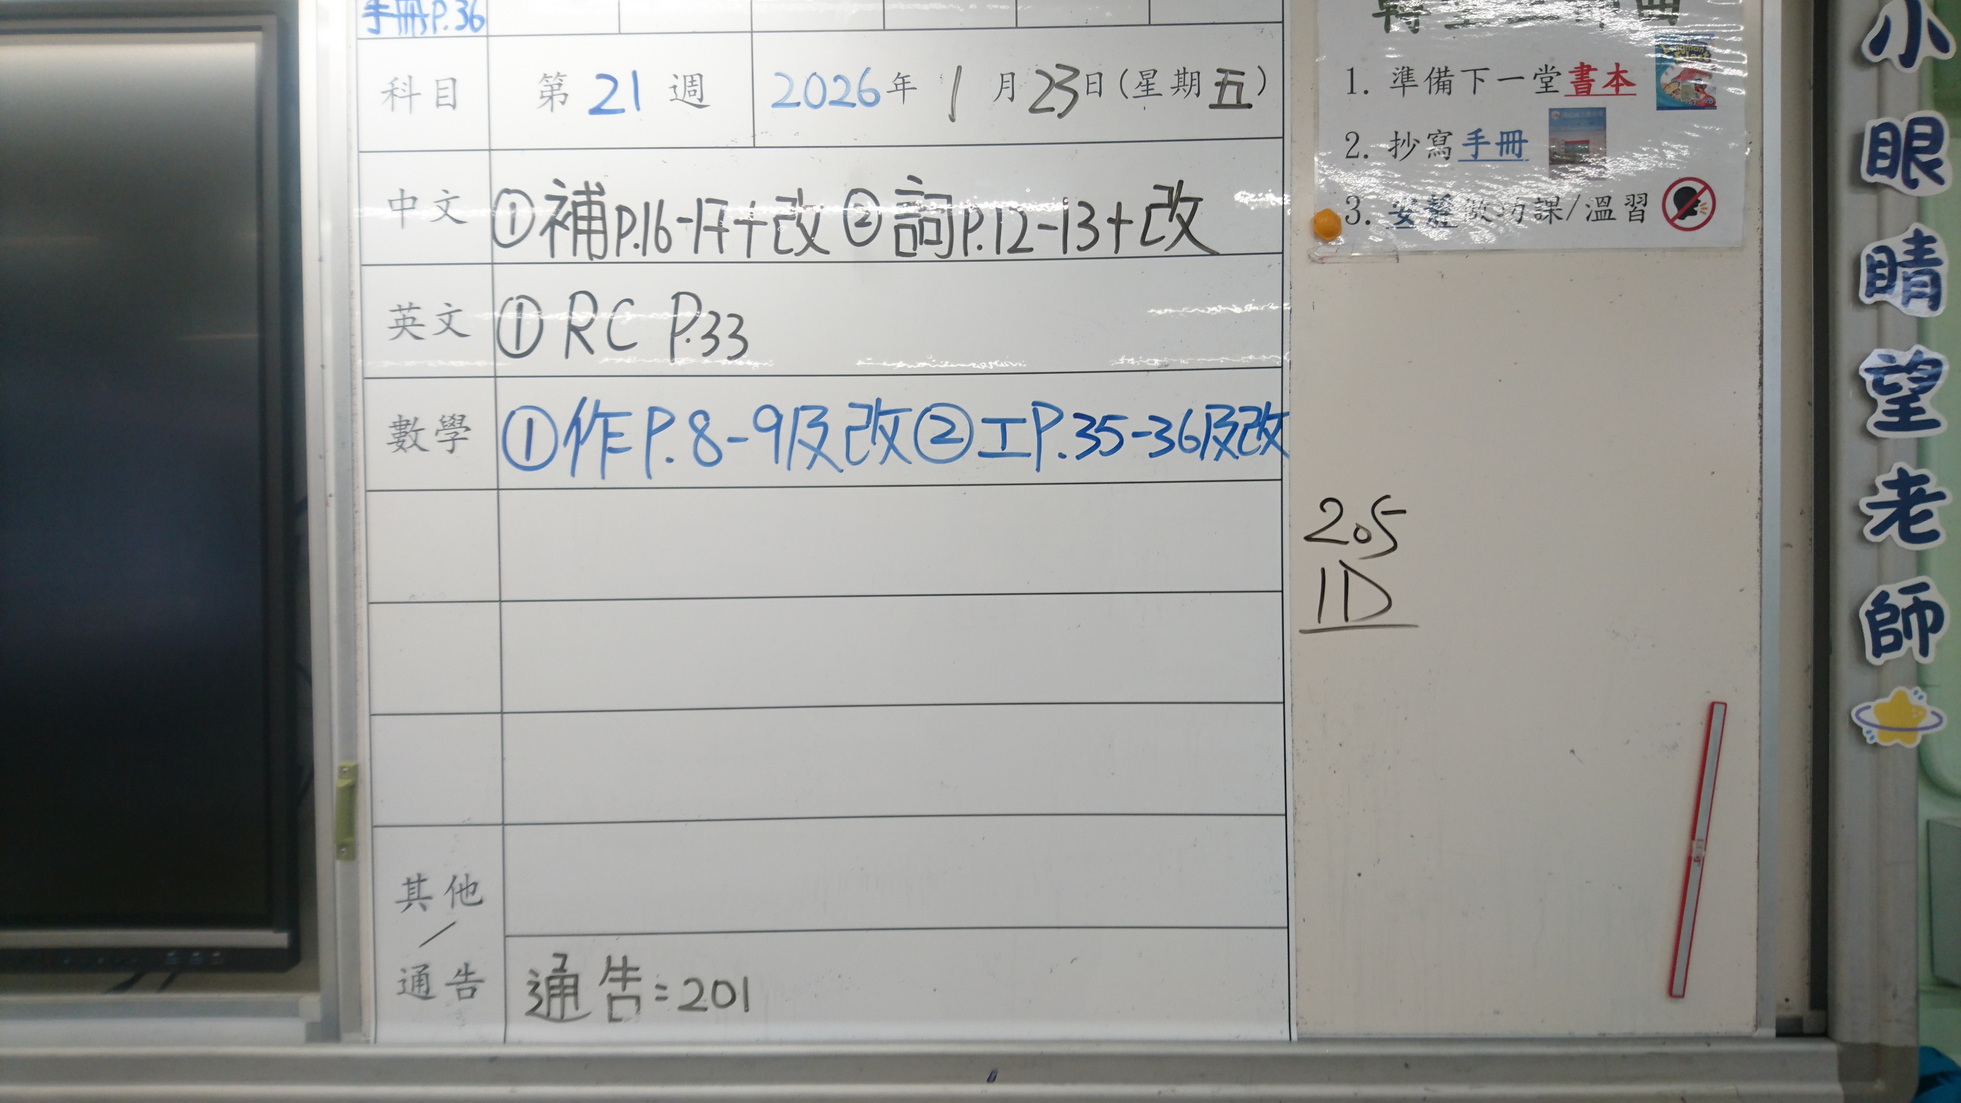 手冊P.36
科目 第 21 週 2026年 1 月 23日(星期五)
中文 ①補P.16-17+改 ②詞P.12-13+改
英文 ① RC P.33
數學 ①作P.8-9及改②工P.35-36及改
其他
/
通告
通告:201
1. 準備下一堂書本
2. 抄寫手冊
3. 安靜做功課/溫習
2.5
1D
小眼睛望老師